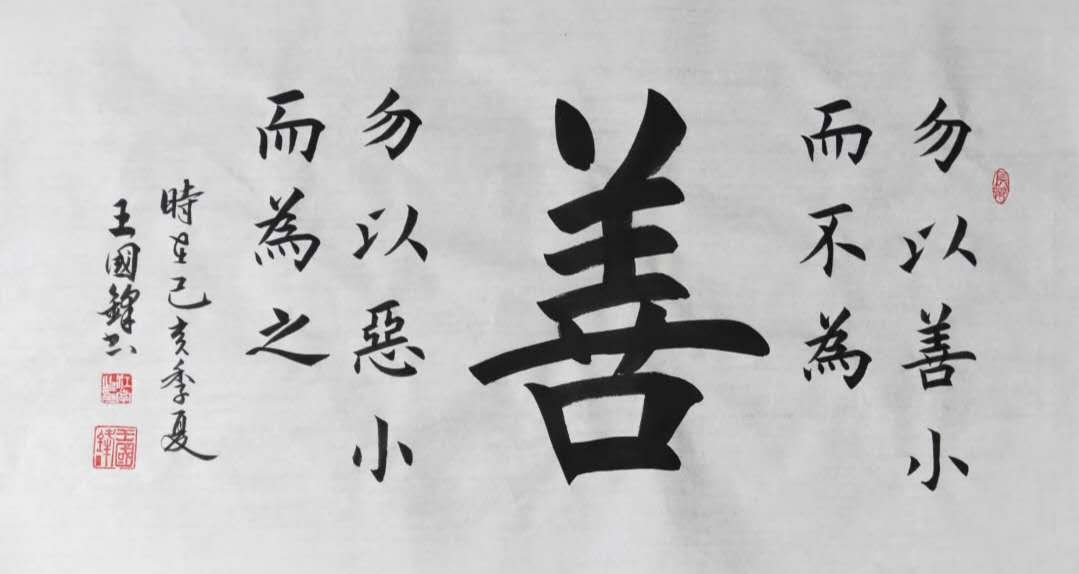 勿以善小
而不為
善
勿以惡小
而為之
時在己亥季夏
王國鋒书